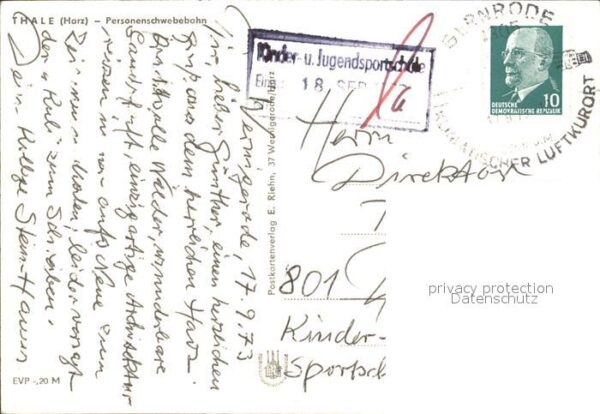 THALE (Harz) – Personenschwebebahn
Wernigerode, 17.9.73
lieber Günther, einen herzlichen
Gruß aus dem herrlichen Harz.
Prachtvolle Wälder, wunderbare
Luft, einzigartige Architektur
reizen mich aufs Neue zum
Zeichnen u. Malen, leider versagt
der "Kuli" zum Schreiben.
Dein Kollege
EVP -,20 M
Postkartenverlag E. Riehn, 37 Wernigerode/Harz
Kinder- u. Jugendsportschule
18. SEP.
WERNIGERODE
KLIMATISCHER LUFTKURORT
DEUTSCHE
DEMOKRATISCHE REPUBLIK
10
Herrn
Direktor
801
Kinder-
Sportsch
privacy protection
Datenschutz